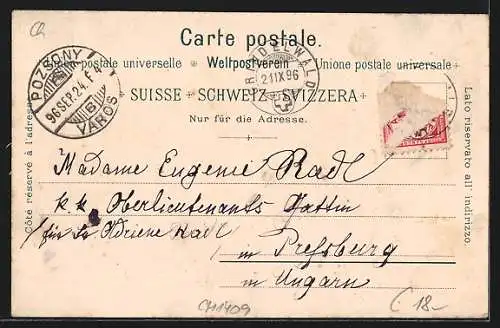 Ch
Carte postale.
Union postale universelle Weltpostverein Unione postale universale
SUISSE SCHWEIZ SVIZZERA
Nur für die Adresse.
POZSONY
96 SEP. 24. É 4
VÁROS
GRINDELWALD
21 IX 96
Côté réservé à l'adresse
Lato riservato all' indirizzo.
Madame Eugenie Radl
k. k. Oberlieutenants Gattin
für Adriene Radl
in Pressburg
in Ungarn
CH1409
18-